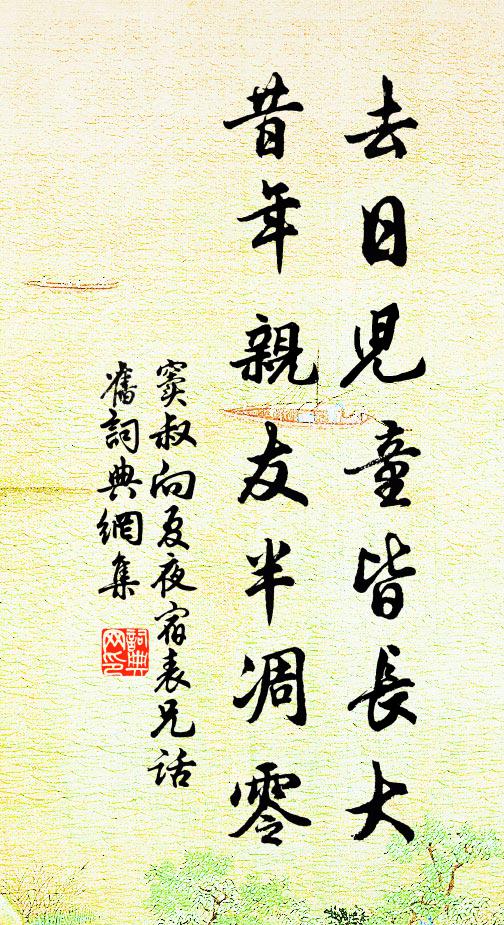 去日兒童皆長大
昔年親友半凋零
竇叔向夏夜宿表兄話
舊詞典網集
詞典网印